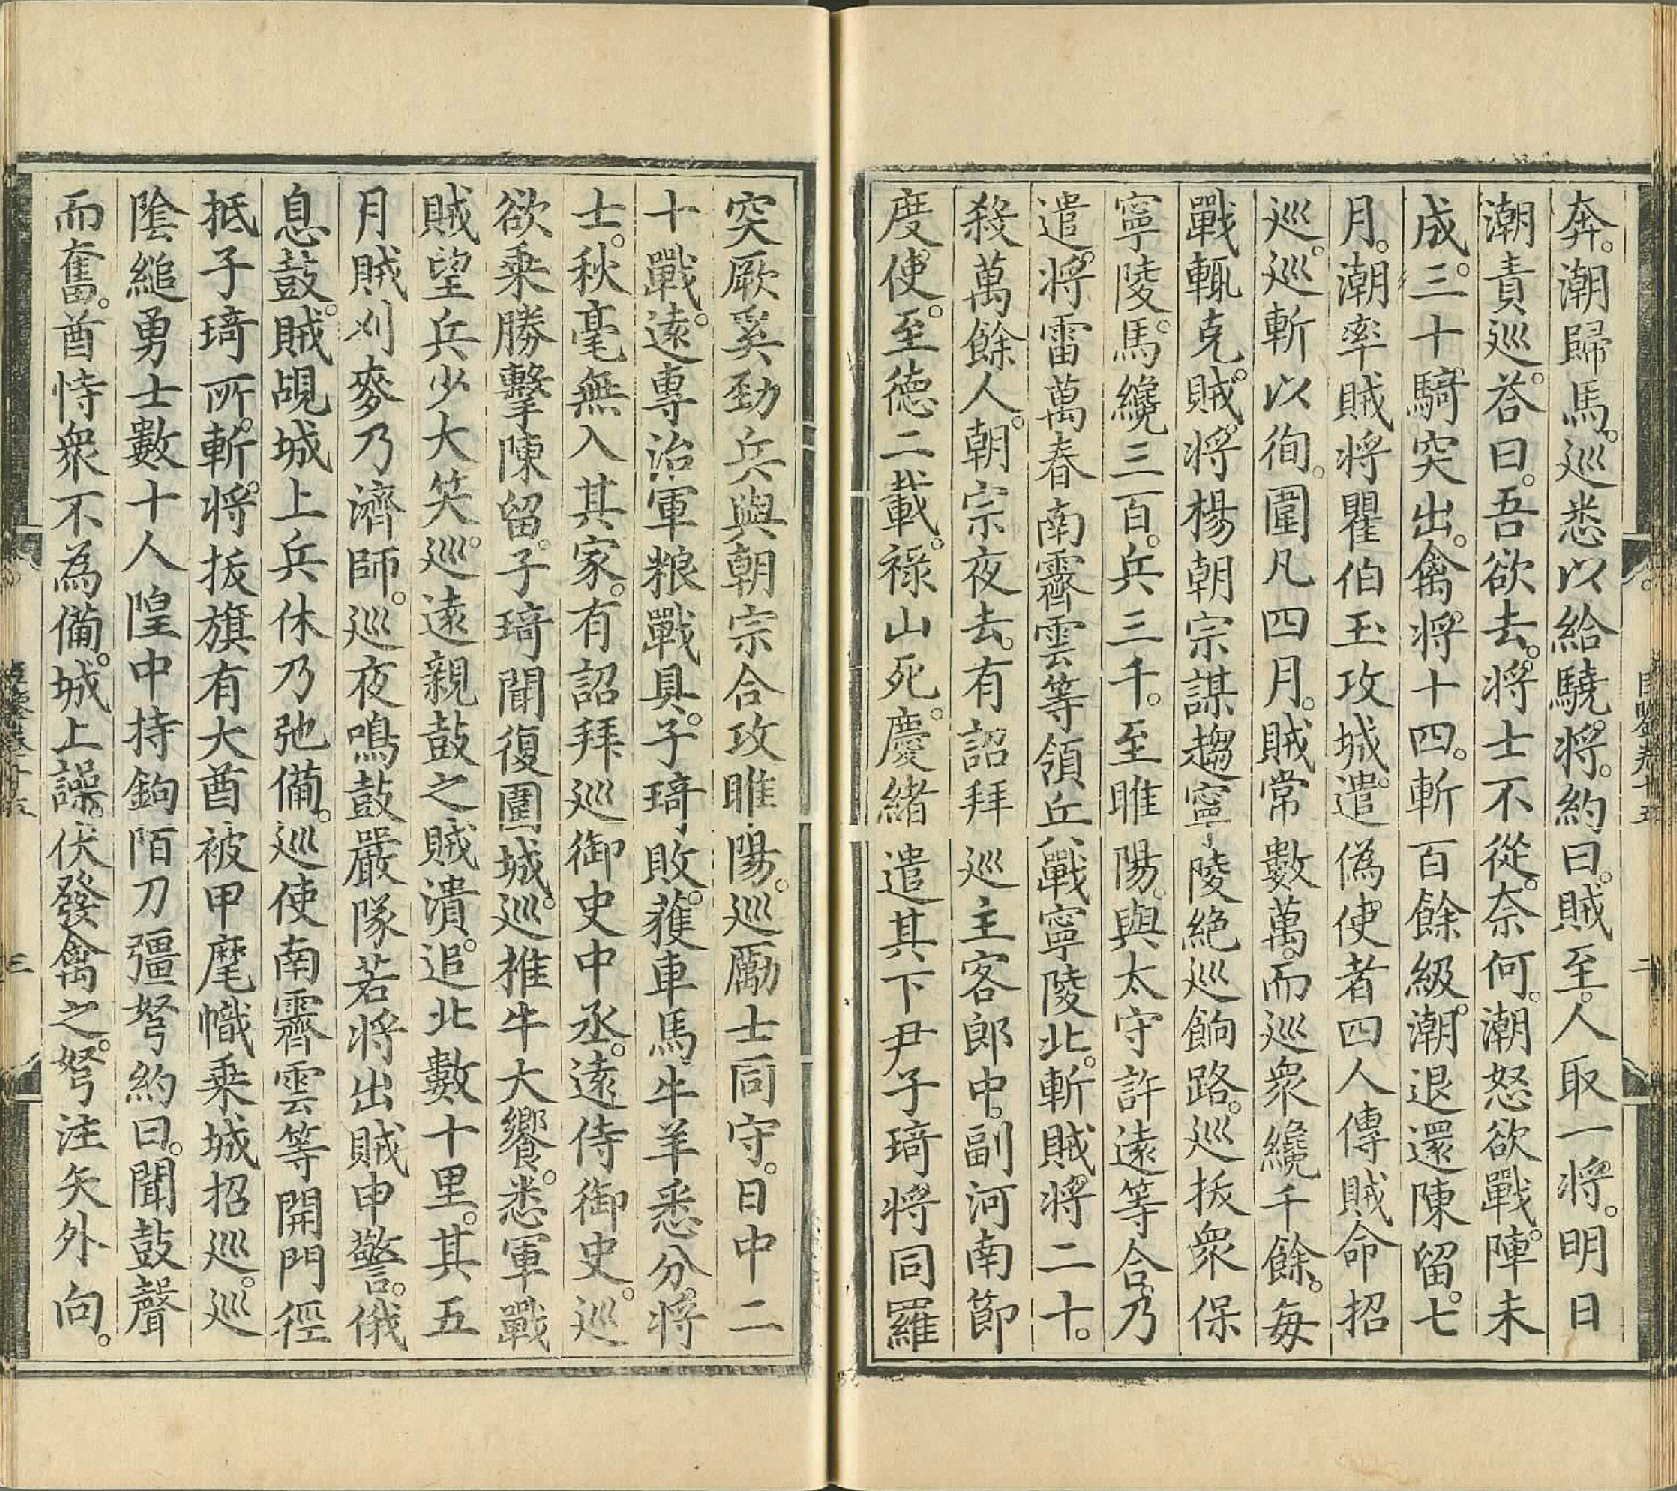 奔。潮歸馬。巡悉以給驍將。約曰。賊至。人取一將。明日
潮責巡。荅曰。吾欲去。將士不從。奈何。潮怒欲戰。陣未
成。三十騎突出。禽將十四。斬百餘級。潮退還陳留。七
月。潮率賊將瞿伯玉攻城。遣偽使者四人傳賊命招
巡。巡斬以徇。圍凡四月。賊常數萬。而巡衆纔千餘。每
戰輒克。賊將楊朝宗謀趨寧陵絶巡餉路。巡拔衆保
寧陵。馬纔三百。兵三千。至睢陽。與太守許遠等合。乃
遣將雷萬春南霽雲等領兵戰寧陵北。斬賊將二十。
殺萬餘人。朝宗夜去。有詔拜巡主客郎中。副河南節
度使。至德二載。祿山死。慶緒遣其下尹子琦將同羅
突厥奚勁兵與朝宗合攻睢陽。巡勵士同守。日中二
十戰。遠專治軍粮戰具。子琦敗。獲車馬牛羊悉分將
士。秋毫無入其家。有詔拜巡御史中丞。遠侍御史。巡
欲乗勝擊陳留。子琦聞復圍城。巡推牛大饗。悉軍戰
賊望兵少大笑。巡遠親鼓之賊潰。追北數十里。其五
月賊刈麥乃濟師。巡夜鳴鼓嚴隊若將出賊申警。俄
息鼓。賊覘城上兵休乃弛備。巡使南霽雲等開門徑
抵子琦所。斬將拔旗有大酋被甲麾幟乗城招巡。巡
陰縋勇士數十人隍中持鉤陌刀彊弩約曰。聞鼓聲
而奮。酋恃衆不為備。城上譟。伏發禽之。弩注矢外向。